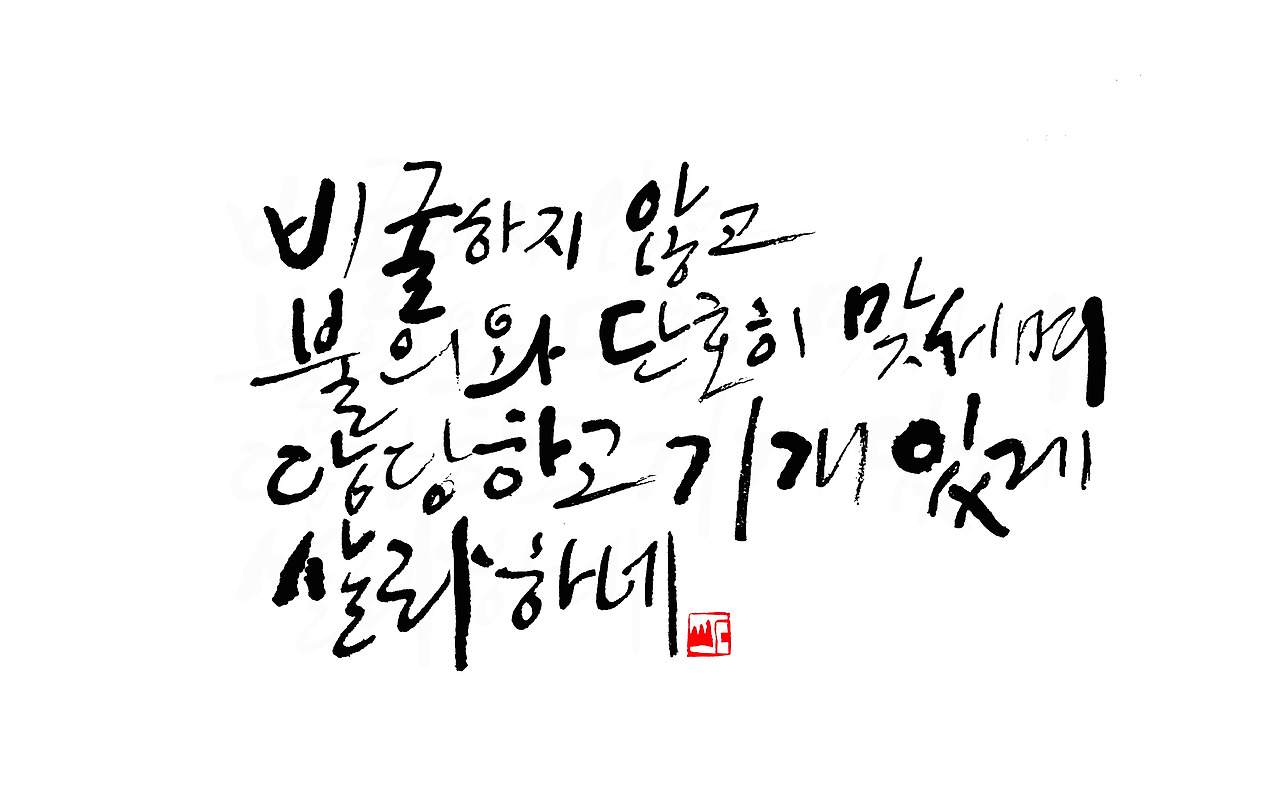 비굴하지 않고
불의와 단호히 맞서며
당당하고 기개 있게
살라하네